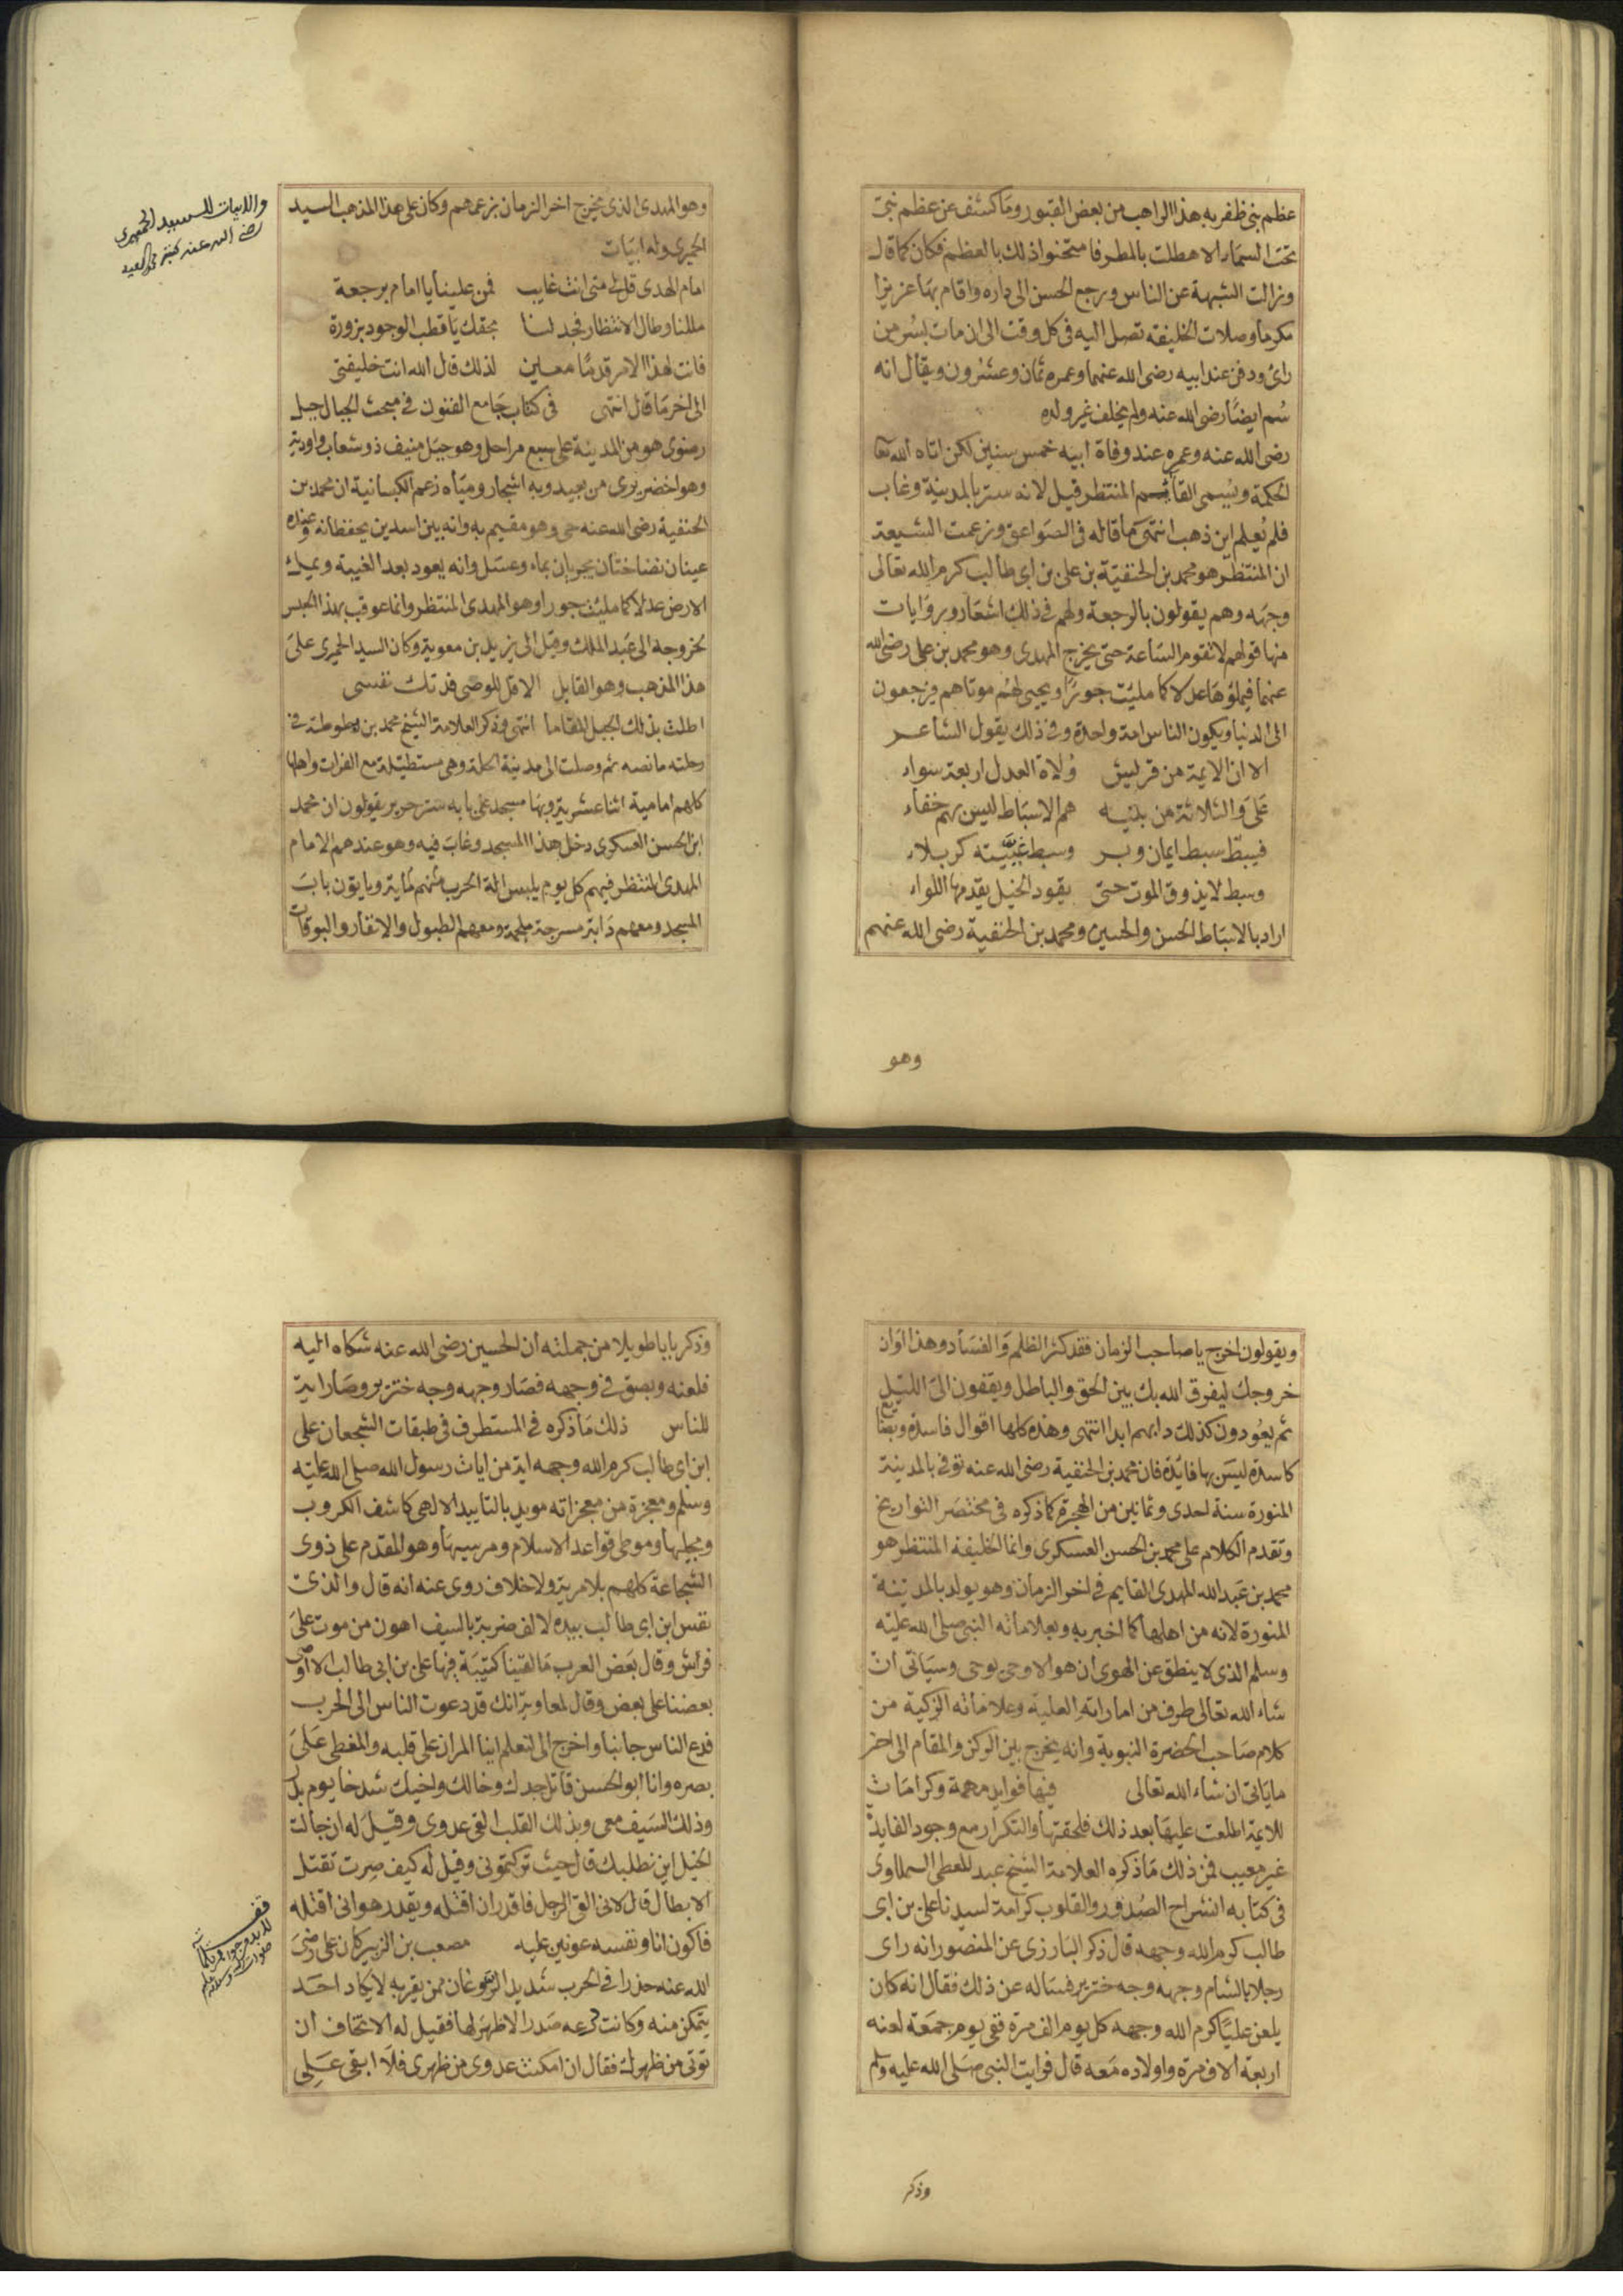 عظم نبي ظفر به هذا الراهب من بعض القبور وما كشف عن عظم نبي
تحت السماء الا هطلت بالمطر فامتحنوا ذلك بالعظم فكان كما قال
وزالت الشبهة عن الناس ورجع الحسن الى داره واقام بها عزيزا
مكرما وصلات الخليفة تصل اليه في كل وقت الى ان مات بسر من
راى ودفن عند ابيه رضى الله عنهما وعمره ثمان وعشرون ويقال انه
سم ايضا رضى الله عنه ولم يخلف غير ولده
رضى الله عنه وعمره عند وفاة ابيه خمس سنين لكن اتاه الله تعا
الحكمة ويسمى القاسم المنتظر قيل لانه ستر بالمدينة وغاب
فلم يعلم اين ذهب انتهى ما قاله في الصواعق وزعمت الشيعة
ان المنتظر هو محمد بن الحنفية بن على بن ابى طالب كرم الله تعالى
وجهه وهم يقولون بالرجعة ولهم في ذلك اشعار وروايات
منها قولهم لا تقوم الساعة حتى يخرج المهدى وهو محمد بن على رضى الله
عنهما فيملؤها عدلا كما مليت جورا ويحيى لهم موتاهم فيرجعون
الى الدنيا ويكون الناس امة واحدة وفي ذلك يقول الشاعر
الا ان الايمة من قريش ولاة العدل اربعة سواء
على والثلاثة من بنيه هم الاسباط ليس بهم خفاء
فسبط سبط ايمان وبر وسبط غيبته كربلاء
وسبط لا يذوق الموت حتى يقود الخيل يقدمها اللواء
اراد بالاسباط الحسن والحسين ومحمد بن الحنفية رضى الله عنهم
وهو
وهو المهدى الذى يخرج اخر الزمان بزعمهم وكان على هذا المذهب السيد
الحميرى وله ابيات
امام الهدى قل لى متى انت غايب فمن علينا يا امام برجعة
مللنا وطال الانتظار فجد لنا بحقك يا قطب الوجود بزورة
فانت لهذا الامر قدما معين لذلك قال الله انت خليفتى
الى اخر ما قال انتهى في كتاب جامع الفنون في مبحث الجبال جبل
رضوى هو من المدينة على سبع مراحل وهو جبل منيف ذو شعاب واودية
وهو اخضر يرى من بعيد وبه اشجار ومياه زعم الكيسانية ان محمد بن
الحنفية رضى الله عنه حى وهو مقيم به وانه بين اسدين يحفظانه وعنده
عينان نضاختان يجريان بماء وعسل وانه يعود بعد الغيبة ويملك
الارض عدلا كما مليت جورا وهو المهدى المنتظر وانما عوقب بهذا الحبس
لخروجه الى عبد الملك وقيل الى يزيد بن معوية وكان السيد الحميرى على
هذا المذهب وهو القايل الا قل للوصى فدتك نفسى
اطلت بذلك الجبل المقاما انتهى وذكر العلامة الشيخ محمد بن بطوطة في
رحلته ما نصه ثم وصلت الى مدينة الحلة وهى مستطيلة مع الفرات واهلها
كلهم امامية اثنا عشرية وبها مسجد على بابه ستر حرير يقولون ان محمد
ابن الحسن العسكرى دخل هذا المسجد وغاب فيه وهو عندهم الامام
المهدى المنتظر فيهم كل يوم يلبس الة الحرب منهم مايه ويايتون باب
المسجد ومعهم دابة مسرجة ملجمة ومعهم الطبول والانفار والبوقات
والابيات للسيد الحميرى
رضى الله عنه
ويقولون اخرج يا صاحب الزمان فقد كثر الظلم والفساد وهذا اوان
خروجك ليفرق الله بك بين الحق والباطل ويقفون الى الليل
ثم يعودون كذلك دابهم ابدا انتهى وهذه كلها اقوال فاسدة وبضايع
كاسدة ليس بها فايدة فان محمد بن الحنفية رضى الله عنه توفى بالمدينة
المنورة سنة احدى وثمانين من الهجرة كما ذكره في مختصر التواريخ
وتقدم الكلام على محمد بن الحسن العسكرى وانما الخليفة المنتظر هو
محمد بن عبد الله المهدى القايم في اخر الزمان وهو يولد بالمدينة
المنورة لانه من اهلها كما اخبر به وبعلاماته النبي صلى الله عليه
وسلم الذى لا ينطق عن الهوى ان هو الا وحى يوحى وسياتى ان
شاء الله تعالى طرف من اماراته العلية وعلاماته الزكية من
كلام صاحب الحضرة النبوية وانه يخرج بين الركن والمقام الى اخر
ما ياتى ان شاء الله تعالى فيها فوايد مهمة وكرامات
للايمة اطلعت عليها بعد ذلك فلحقتها والتكرار مع وجود الفايدة
غير معيب فمن ذلك ما ذكره العلامة الشيخ عبد المعطى السملاوى
في كتابه انشراح الصدور والقلوب كرامة لسيدنا على بن ابى
طالب كرم الله وجهه قال ذكر البارزى عن المنصور انه راى
رجلا بالشام وجهه وجه خنزير فساله عن ذلك فقال انه كان
يلعن عليا كرم الله وجهه كل يوم الف مرة ففى يوم جمعة لعنه
اربعة الاف مرة واولاده معه قال فرايت النبي صلى الله عليه وسلم
وذكر
وذكر بابا طويلا من جملته ان الحسين رضى الله عنه شكاه اليه
فلعنه وبصق في وجهه فصار وجهه وجه خنزير وصار اية
للناس ذلك ما ذكره في المستطرف في طبقات الشجعان على
ابن ابى طالب كرم الله وجهه اية من ايات رسول الله صلى الله عليه
وسلم ومعجزة من معجزاته مويد بالتاييد الالهى كاشف الكروب
ومجليها وموطى قواعد الاسلام ومرسيها وهو المقدم على ذوى
الشجاعة كلهم بلا مرية ولا خلاف روى عنه انه قال والذى
نفس ابن ابى طالب بيده لالف ضربة بالسيف اهون من موت على
فراش وقال بعض العرب ما لقينا كتيبة فيها على بن ابى طالب الا اوصى
بعضنا على بعض وقال لمعاوية انك قد دعوت الناس الى الحرب
فدع الناس جانبا واخرج الى لتعلم اينا المران على قلبه والمغطى على
بصره وانا ابو الحسن قاتل جدك وخالك واخيك شدخا يوم بدر
وذلك السيف معى وبذلك القلب القى عدوى وقيل له ان جالت
الخيل اين نطلبك قال حيث تركتمونى وقيل له كيف صرت تقتل
الابطال قال لانى القى الرجل فاقدر ان اقتله ويقدر هو انى اقتله
فاكون انا ونفسه عونين عليه مصعب بن الزبير كان على رضى
الله عنه حذرا في الحرب شديد الروغان ممن يقربه لا يكاد احد
يتمكن منه وكانت درعه صدرا لا ظهر لها فقيل له الا تخاف ان
توتى من ظهرك فقال ان امكنت عدوى من ظهرى فلا ابقى على
قف